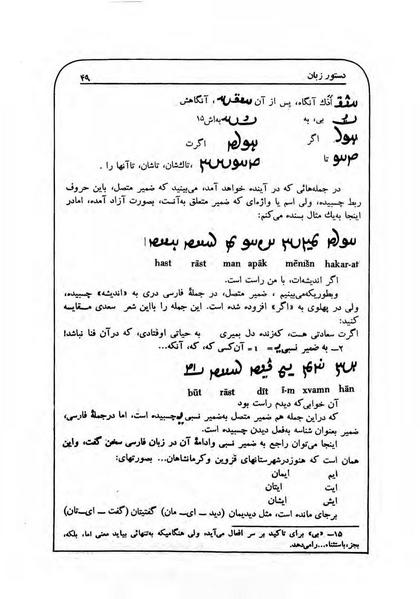 دستور زبان ۴۹
اَدَك آنگاه، پس از آن ، آنگاهش
بی، به بهاش۱۵
اگر اگرت
تا ،تاكشان، تاشان، تاآنها را .
در جمله‌هائی كه در آینده خواهد آمد، می‌بینید كه ضمیر متصل، باین حروف
ربط چسبیده، ولی اسم یا واژه‌ای كه ضمیر متعلق به‌آنست، بصورت آزاد آمده، امادر
اینجا به‌یك مثال بسنده می‌كنم:
hast rāst man apāk mēnišn hakar-at
اگر اندیشه‌ات، با من راست است.
وبطوریكه‌می‌بینیم ، ضمیر متصل، در جملهٔ فارسی دری به «اندیشه» چسبیده،
ولی در پهلوی به «اگر» افزوده شده است. این جمله را بااین شعر سعدی مقایسه
كنید:
اگرت سعادتی هست، كه‌زنده دل بمیری به حیاتی اوفتادی، كه درآن فنا نباشد!
۲ــ به ضمیر نسبی = ī = آن‌كسی كه، كه، آنكه...
būt rāst dīt ī-m xvamn hān
آن خوابی‌كه دیدم راست بود
كه دراین جمله هم ضمیر متصل به‌ضمیر نسبی چسبیده است، اما درجملهٔ فارسی،
ضمیر بعنوان شناسه به‌فعل دیدن چسبیده است.
اینجا می‌توان راجع به ضمیر نسبی وادامهٔ آن در زبان فارسی سخن گفت، واین
همان است كه هنوزدرشهرستانهای قزوین وكرمانشاهان... بصورتهای:
ایم ایمان
ایت ایتان
ایش ایشان
برجای مانده است، مثل دیدیمان (دید ــ ای ــ مان) گفتیتان (گفت ــ ای ــ تان)
۱۵ــ «بی» برای تاكید بر سر افعال می‌آید، ولی هنگامیكه به‌تنهائی بیاید معنی اما، بلكه،
بجز، باستثناء... رامی‌دهد.